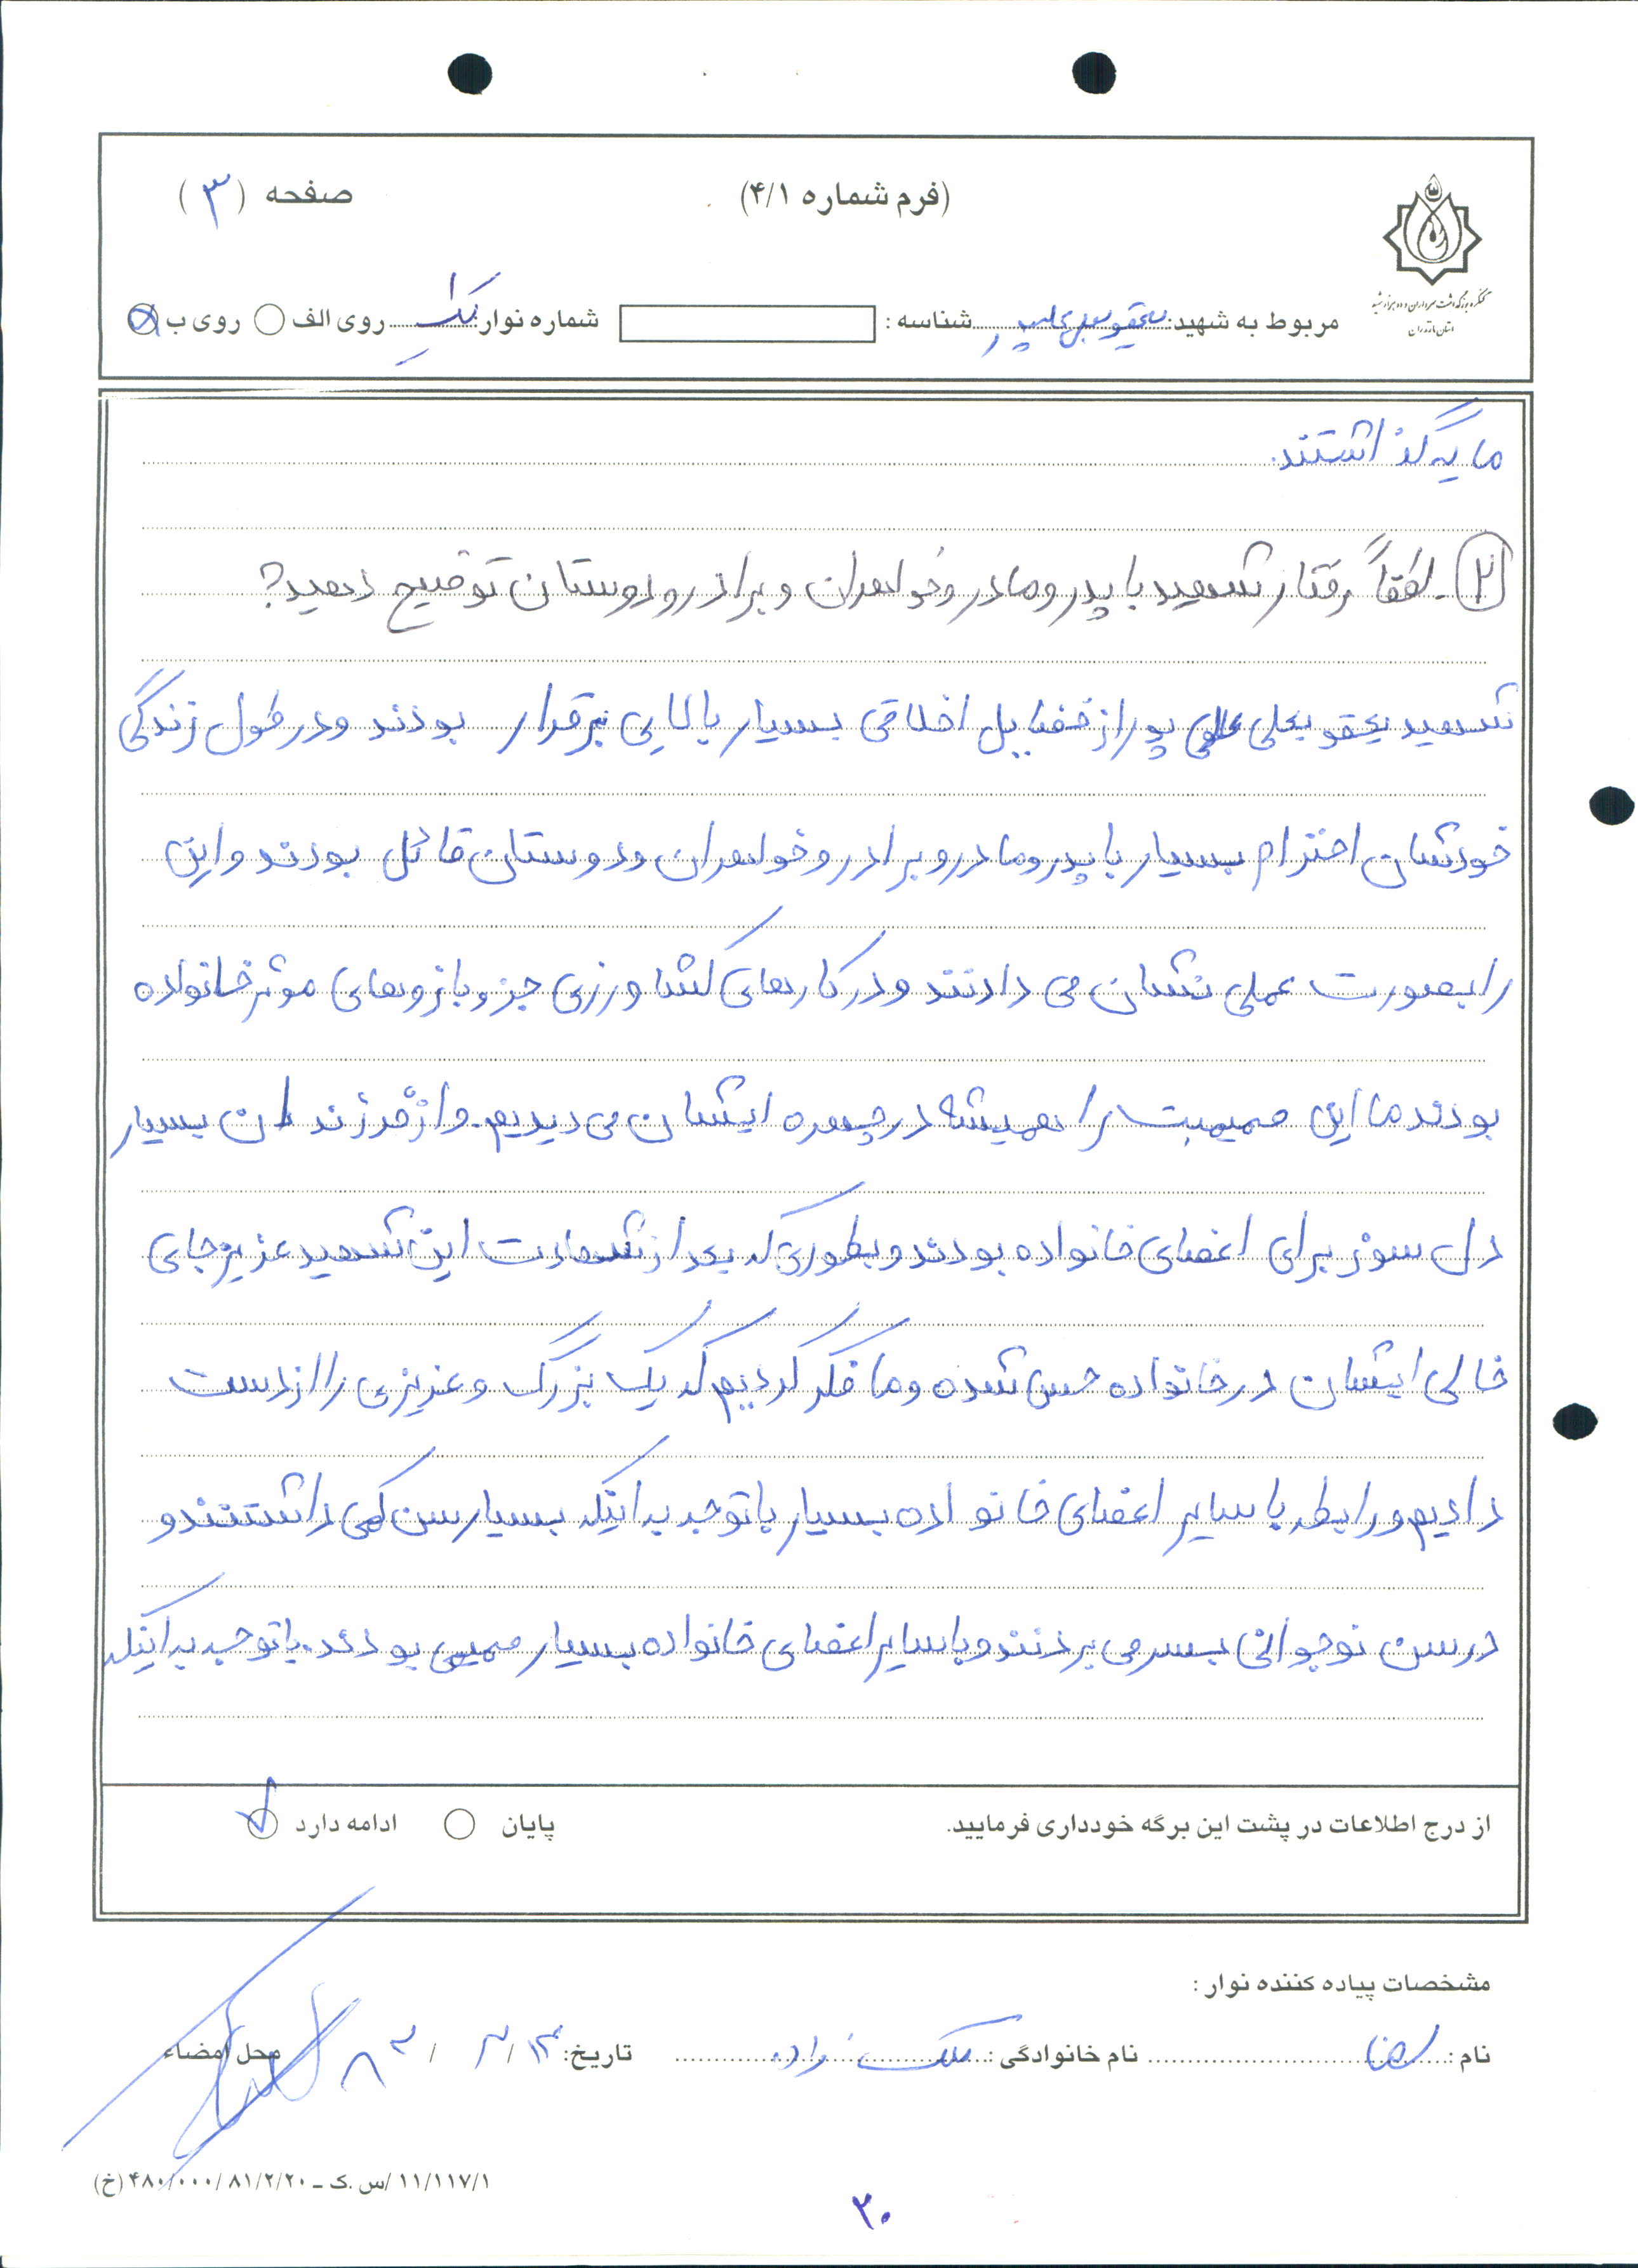 (فرم شماره ۴/۱)
صفحه (۳)
کنگره بزرگداشت سرداران و ده هزار شهید
استان مازندران
مربوط به شهید: یعقوبعلی علیپور شناسه : شماره نوار: یک روی الف روی ب
مایه گذاشتند.
۲- لطفاً رفتار شهید با پدر و مادر و خواهران و برادر و دوستان توضیح دهید؟
شهید یعقوبعلی علی پور از فضایل اخلاقی بسیار بالایی برقرار بودند و در طول زندگی
خودشان احترام بسیار با پدر و مادر و برادر و خواهران و دوستان قائل بودند و این
را بصورت عملی نشان می دادند و در کارهای کشاورزی جزو بازوهای موثر خانواده
بودند ما این صمیمیت را همیشه در چهره ایشان می دیدیم. و از فرزندان بسیار
دل سوز برای اعضای خانواده بودند و بطوری که بعد از شهادت این شهید عزیز جای
خالی ایشان در خانواده حس شده و ما فکر کردیم که یک بزرگ و عزیزی را از دست
دادیم و رابطه با سایر اعضای خانواده بسیار با توجه به اینکه بسیار سن کمی داشتند و
در سن نوجوانی بسر می بردند و با سایر اعضای خانواده بسیار صمیمی بودند. با توجه به اینکه
از درج اطلاعات در پشت این برگه خودداری فرمایید. پایان ادامه دارد
مشخصات پیاده کننده نوار :
نام : نام خانوادگی : ملک زاده تاریخ: ۱۳ / ۳ / ۸۳ محل امضاء
۱۱/۱۱۷/۱ /س .ک ـ ۸۱/۲/۲۰ /۴۸۰/۰۰۰ (خ)
۳۰